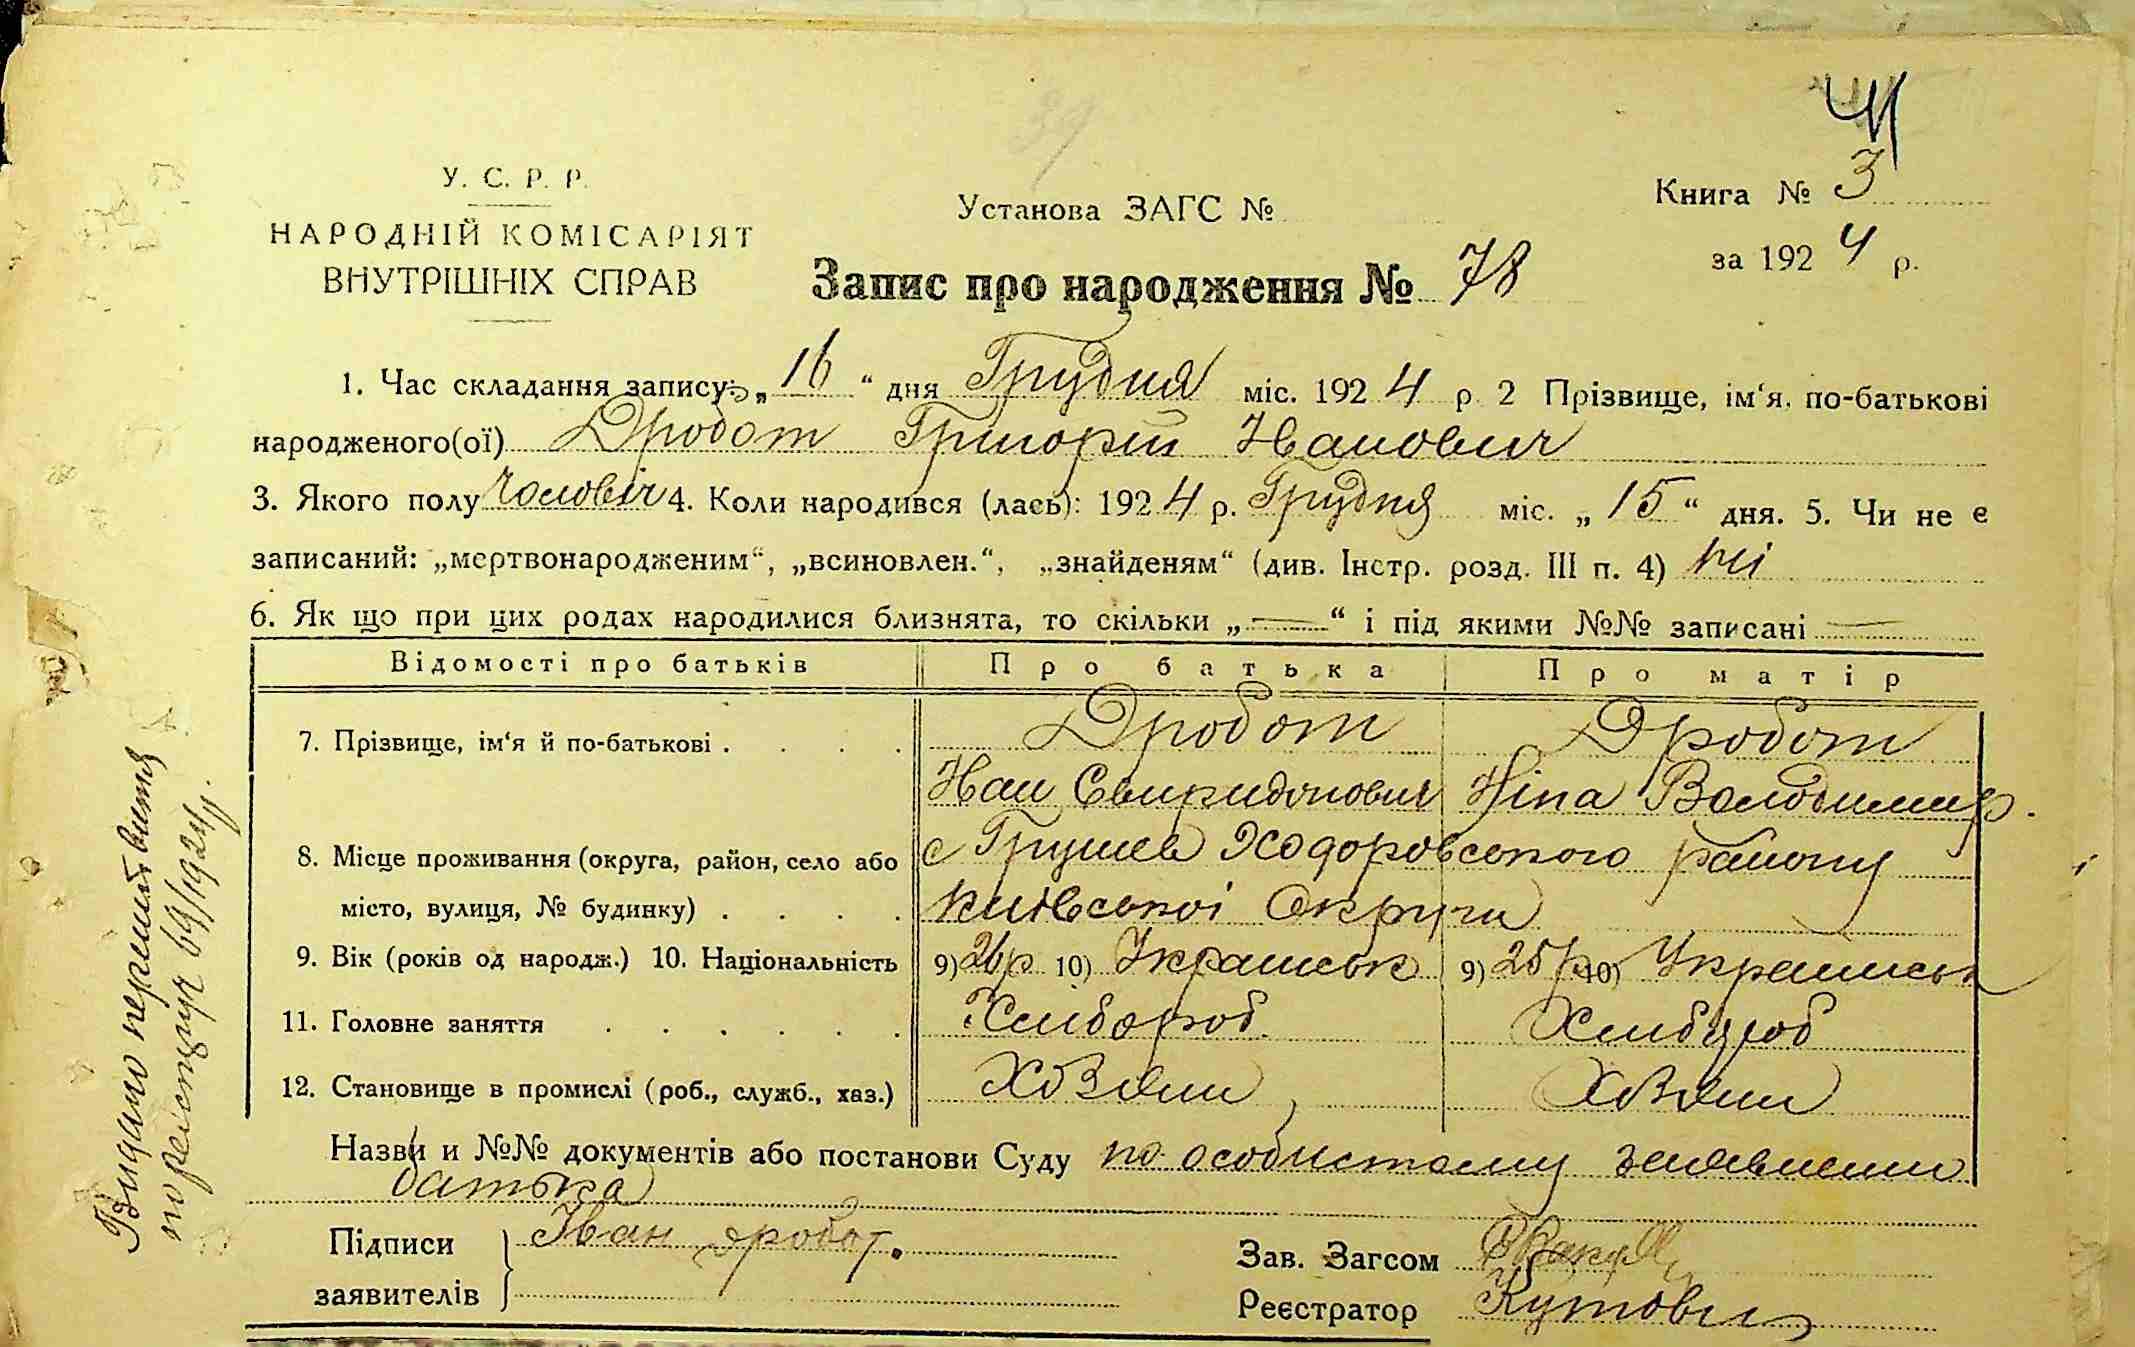 У. С. Р. Р.
НАРОДНІЙ КОМІСАРІЯТ
ВНУТРІШНІХ СПРАВ
39
Установа ЗАГС №
Книга № 3
за 1924 р.
Запис про народження № 78
1. Час складання запису: „16“ дня Грудня міс. 1924 р 2 Прізвище, ім‘я, по-батькові
народженого(ої) Дробот Григорій Іванович
3. Якого полу чоловіч 4. Коли народився (лась): 1924 р. Грудня міс. „15“ дня. 5. Чи не є
записаний: „мертвонародженим“, „всиновлен.“, „знайденям“ (див. Інстр. розд. III п. 4) ні
6. Як що при цих родах народилися близнята, то скільки „—“ і під якими №№ записані —
Відомості про батьків Про батька Про матір
7. Прізвище, ім‘я й по-батькові . . . . Дробот Дробот
Іван Свиридонович Ніна Володимир.
8. Місце проживання (округа, район, село або с Грушев Ходоровського району
місто, вулиця, № будинку) . . . . Київської Округи
9. Вік (років од народж.) 10. Національність 9) 26 р 10) Українськ 9) 25 р 10) Українськ
11. Головне заняття . . . . . . Хлибороб Хлибороб
12. Становище в промислі (роб., служб., хаз.) Хозяин Хозяин
Назви и №№ документів або постанови Суду по особистому заявлению
батька
Підписи Іван дробот.
заявителів
Зав. Загсом
Реєстратор Кутовий
Видано перший витяг
по реестру 69/1924 р.